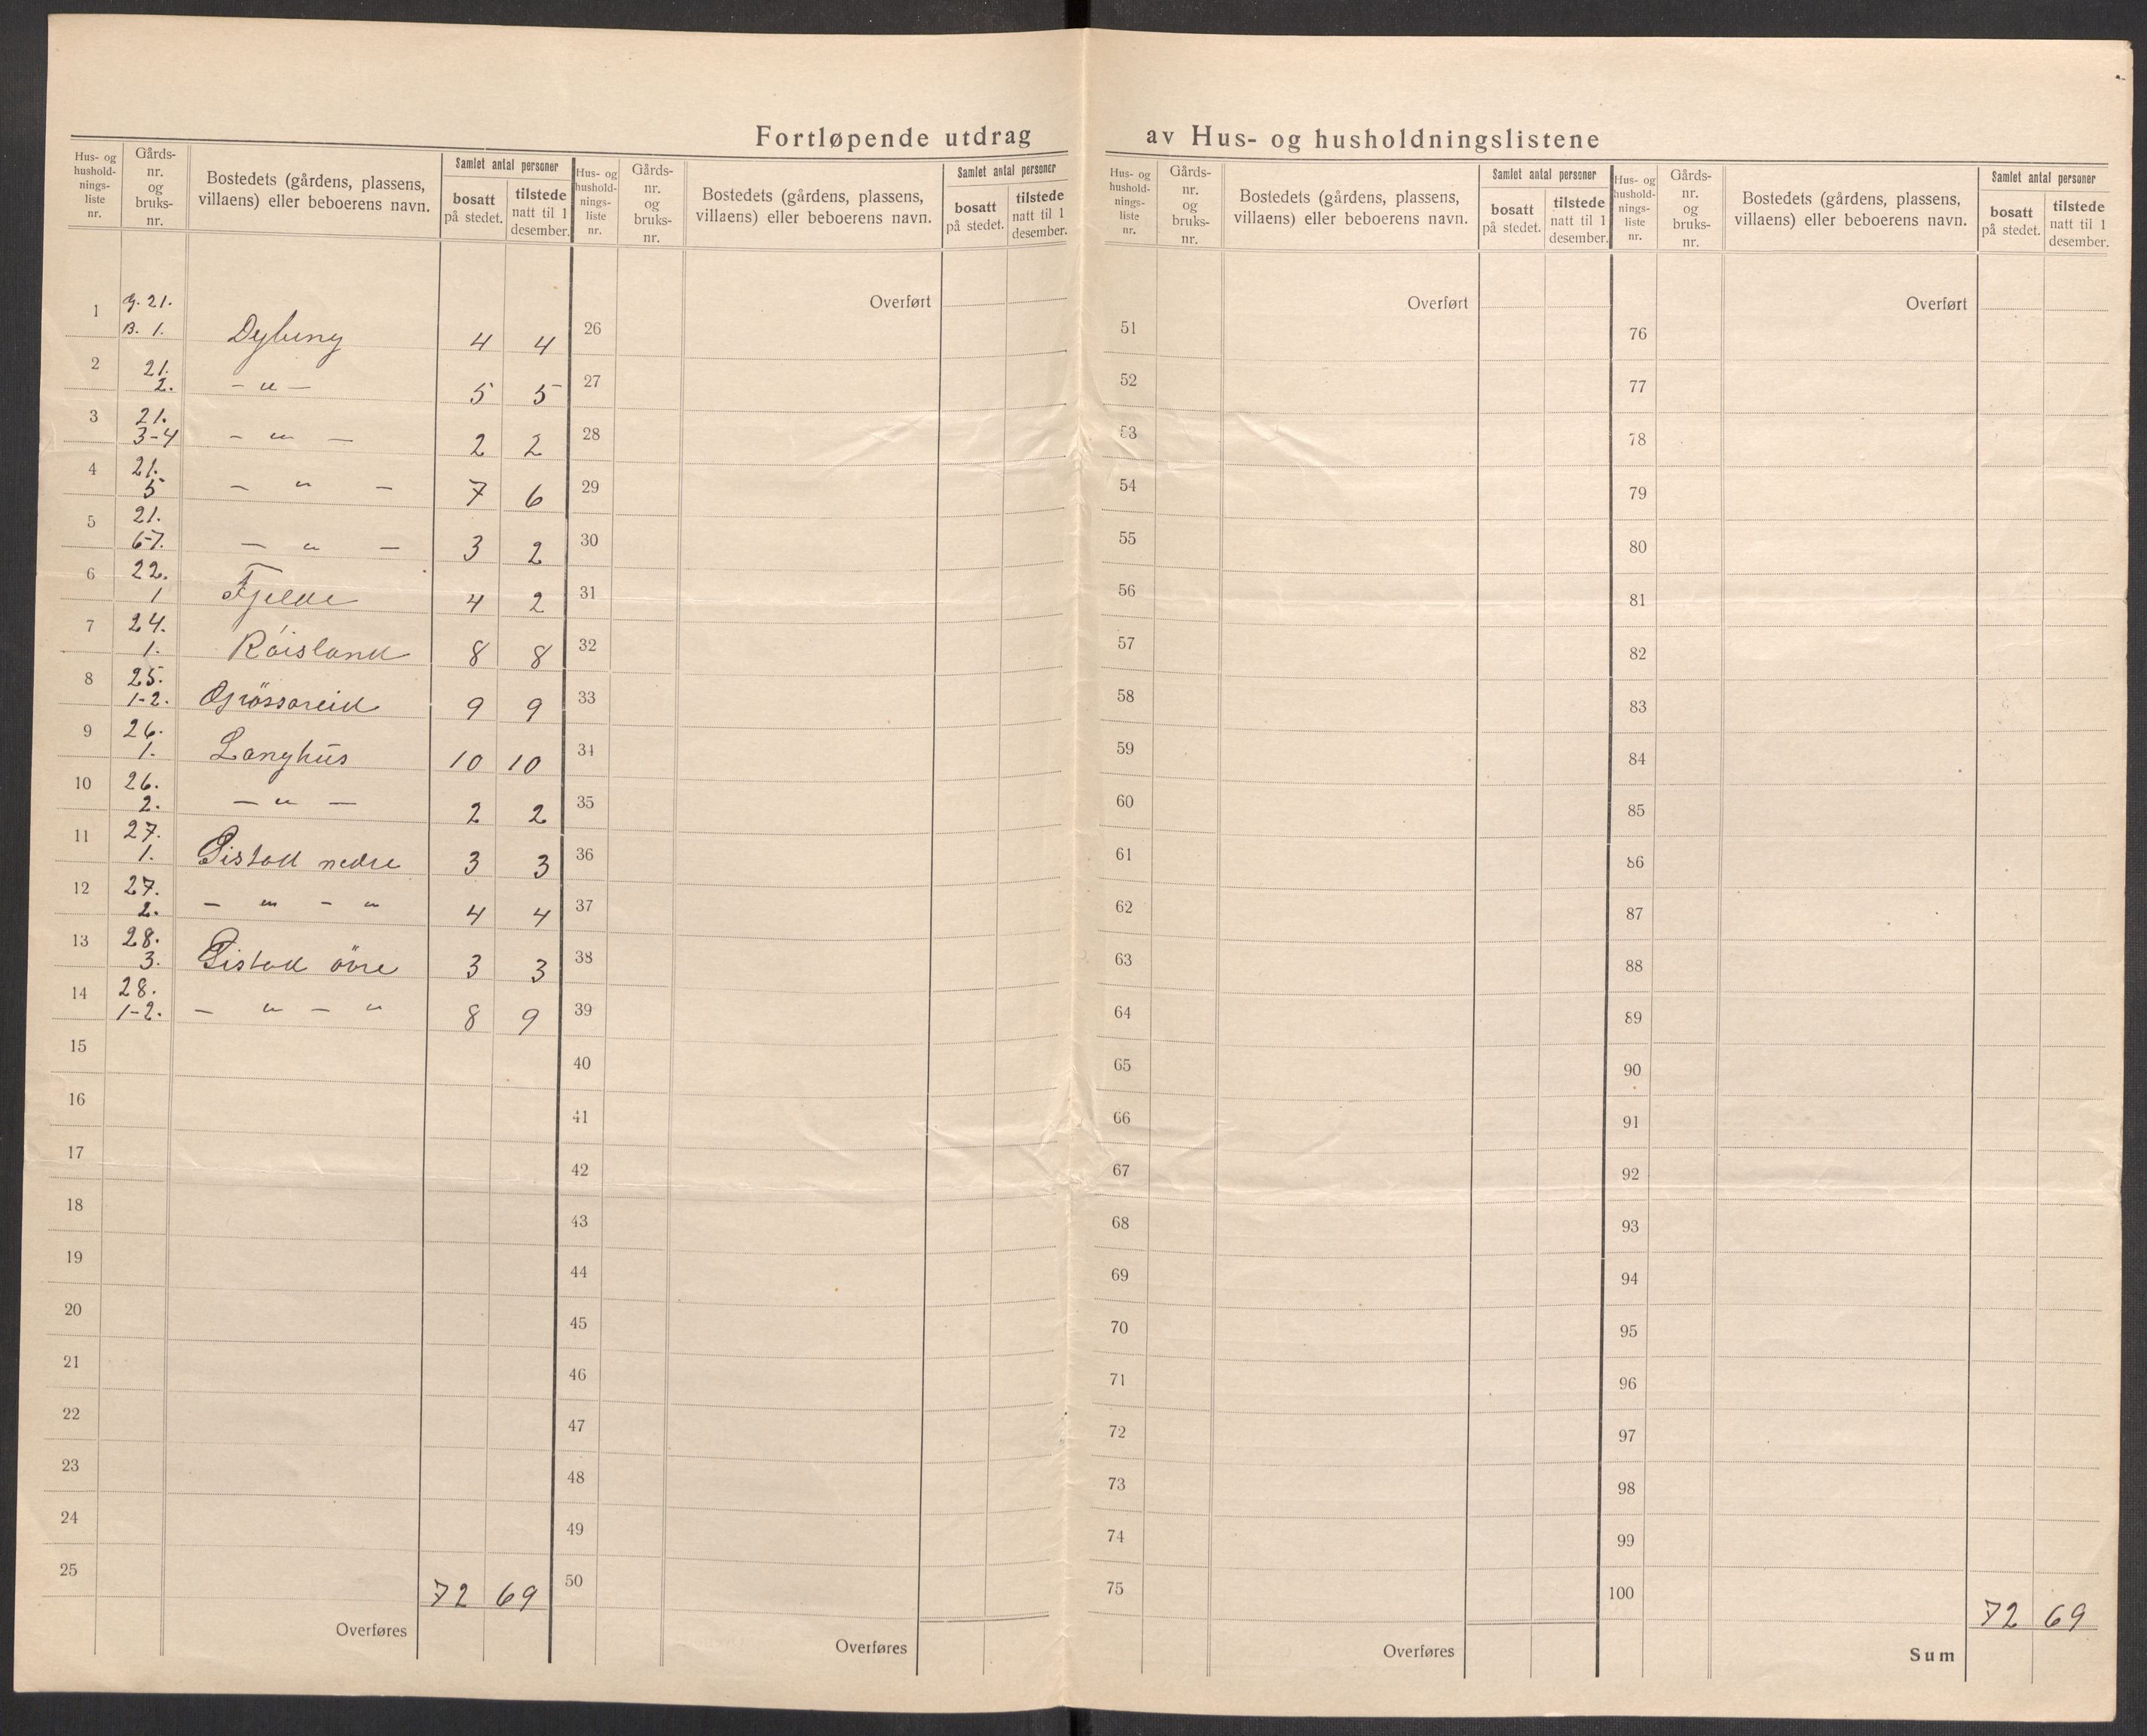 Fortløpende utdrag av Hus- og husholdningslistene
Hus- og hushold- nings- liste nr. Gårds- nr. og bruks- nr. Bostedets (gårdens, plassens, villaens) eller beboerens navn. Samlet antal personer bosatt på stedet. tilstede natt til 1 desember.
Hus- og hushold- nings- liste nr. Gårds- nr. og bruks- nr. Bostedets (gårdens, plassens, villaens) eller beboerens navn. Samlet antal personer bosatt på stedet. tilstede natt til 1 desember.
Hus- og hushold- nings- liste nr. Gårds- nr. og bruks- nr. Bostedets (gårdens, plassens, villaens) eller beboerens navn. Samlet antal personer bosatt på stedet. tilstede natt til 1 desember.
Hus- og hushold- nings- liste nr. Gårds- nr. og bruks- nr. Bostedets (gårdens, plassens, villaens) eller beboerens navn. Samlet antal personer bosatt på stedet. tilstede natt til 1 desember.
1 G. 21. B. 1. Dybing 4 4
2 21. 2. — " — 5 5
3 21. 3-4 — " — 2 2
4 21. 5 — " — 7 6
5 21. 6-7. — " — 3 2
6 22. 1 Fjelde 4 2
7 24. 1. Röisland 8 8
8 25. 1-2. Grössareid 9 9
9 26. 1. Langhus 10 10
10 26. 2. — " — 2 2
11 27. 1. Gistad nedre 3 3
12 27. 2. — " — " 4 4
13 28. 3. Gistad övre 3 3
14 28. 1-2. — " — " 8 9
15
16
17
18
19
20
21
22
23
24
25
72 69
Overføres
Overført
26
27
28
29
30
31
32
33
34
35
36
37
38
39
40
41
42
43
44
45
46
47
48
49
50
Overføres
Overført
51
52
53
54
55
56
57
58
59
60
61
62
63
64
65
66
67
68
69
70
71
72
73
74
75
Overføres
Overført
76
77
78
79
80
81
82
83
84
85
86
87
88
89
90
91
92
93
94
95
96
97
98
99
100
72 69
Sum